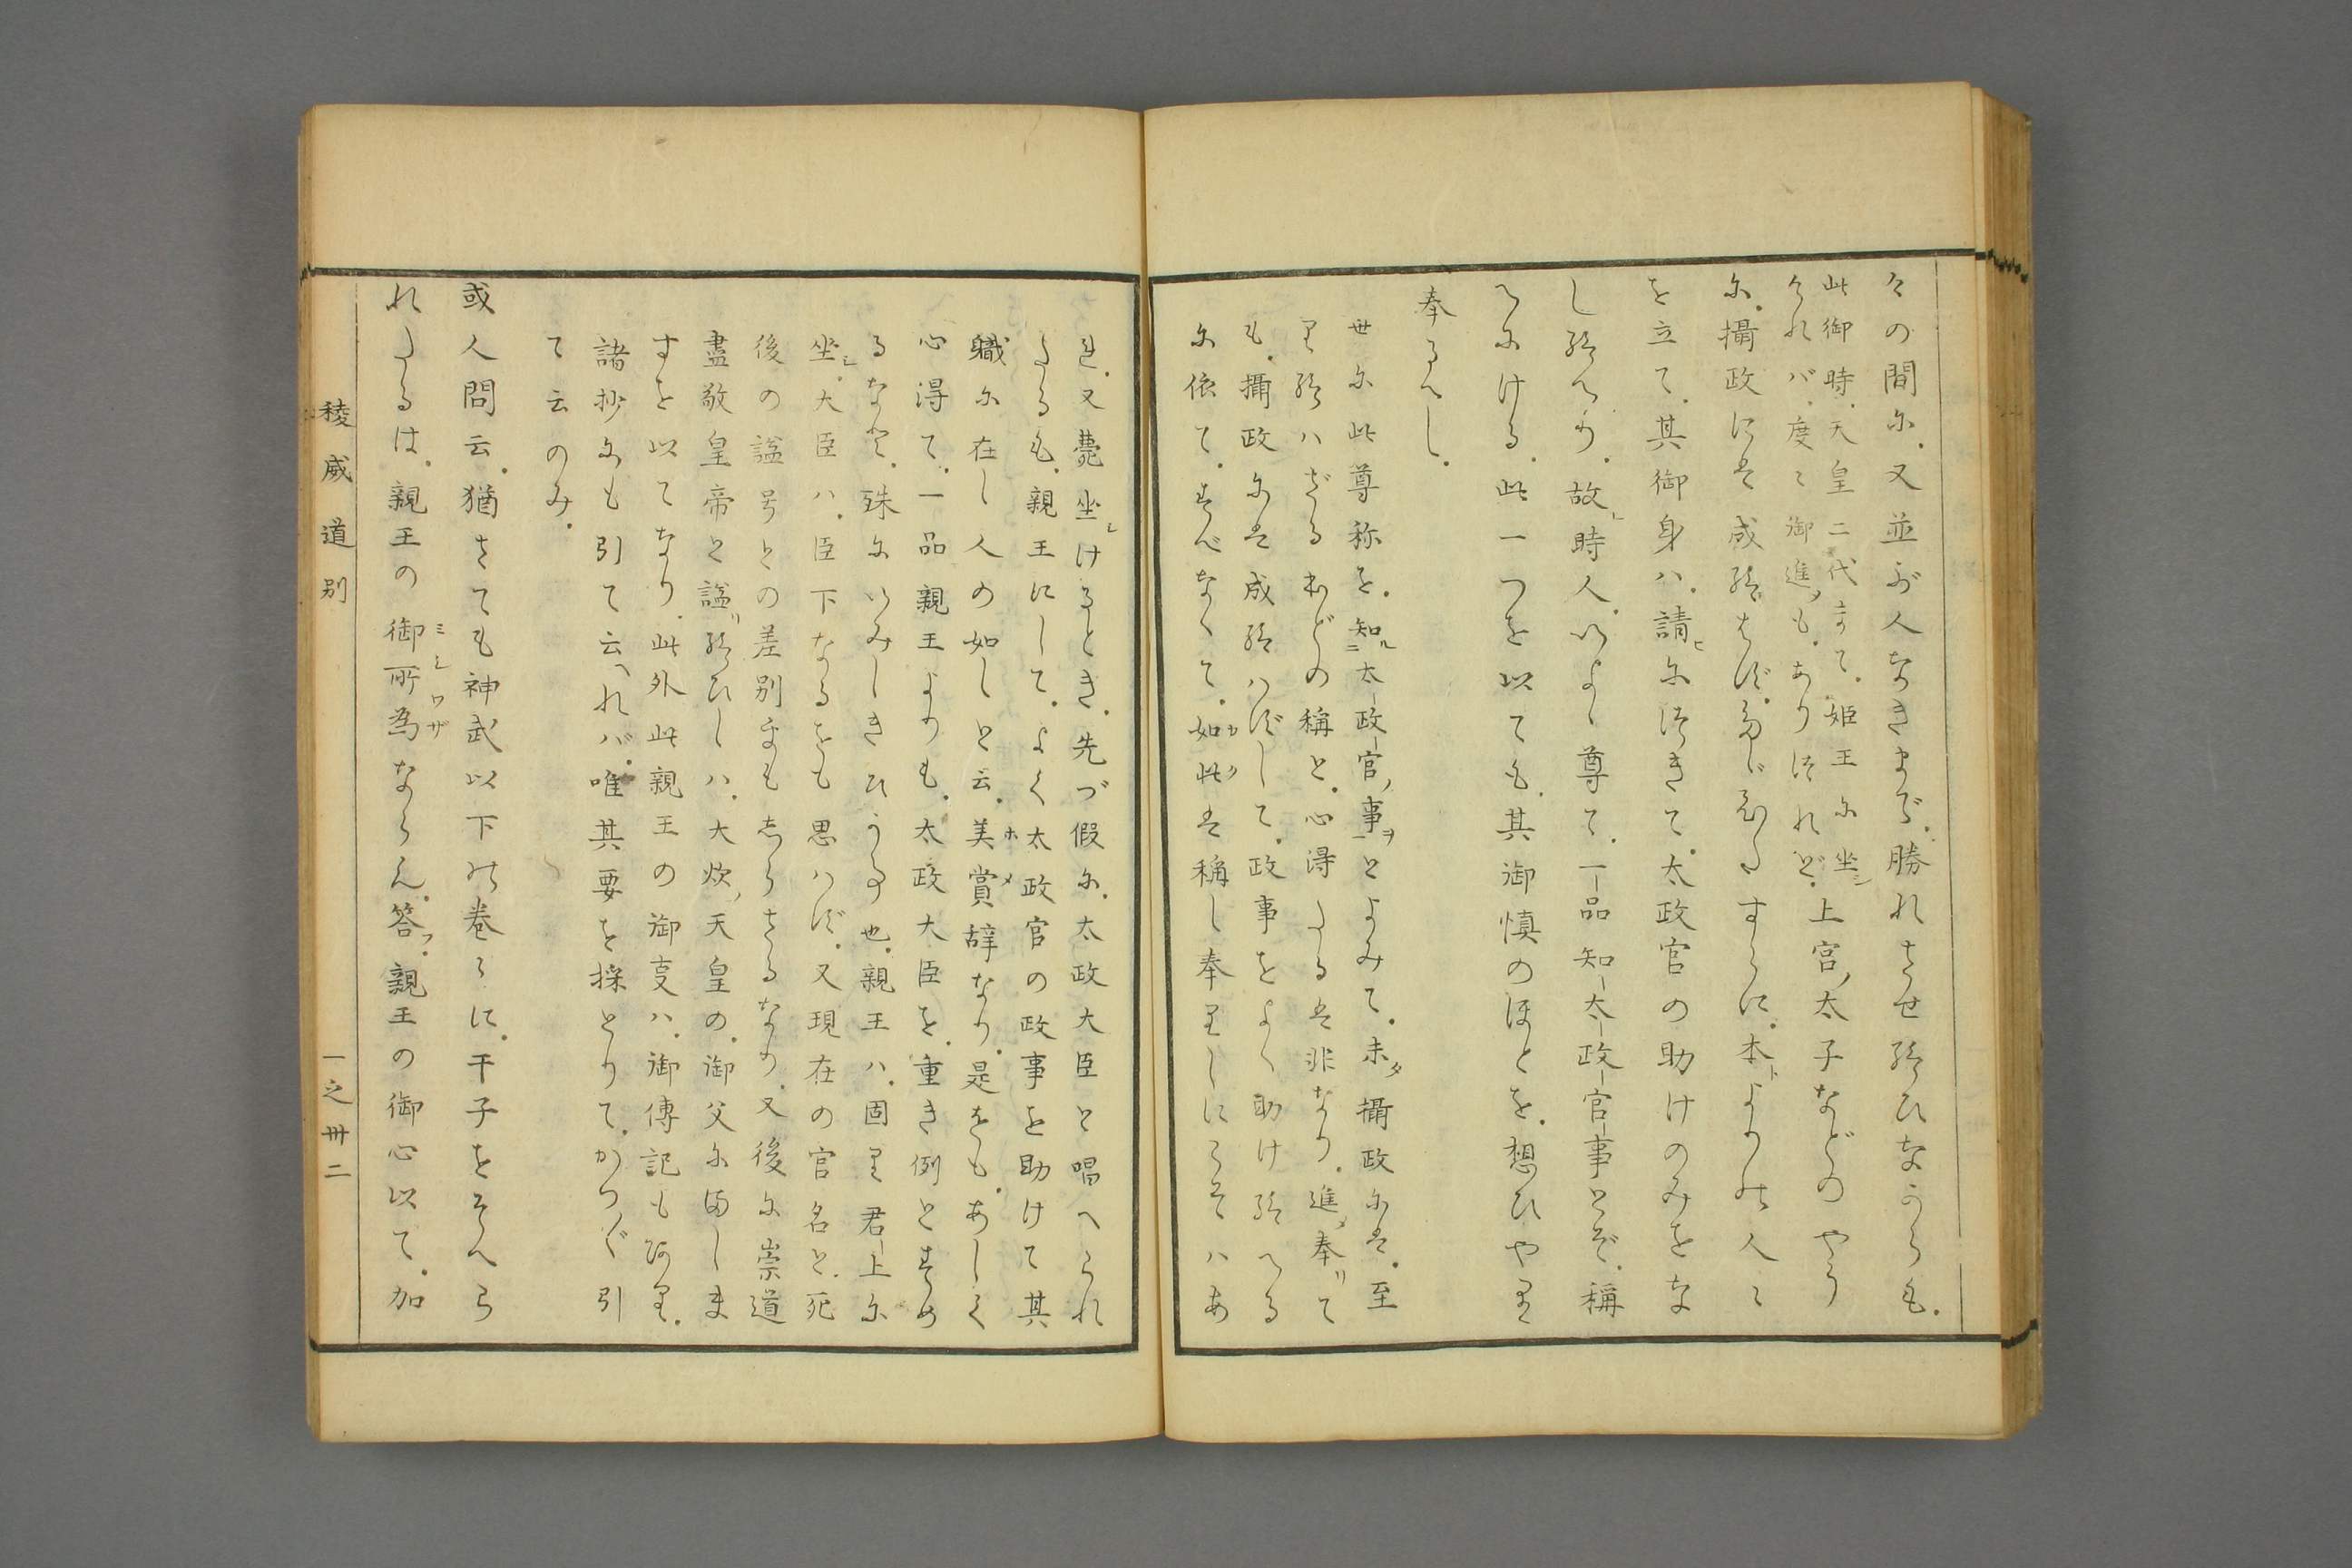 々の間尓.又並ぶ人なきまで.勝れさせ給ひながらも.
此御時.天皇二代まて.姫王尓坐シ
けれバ.度々御進メも.ありけれど.上宮ノ太子などのやう
尓.攝政には成給はず.
すらに.本トよりの人々
を立て.其御身ハ.請ヒ尓つきて.太政官の助けのみをな
し給へり.故レ時人.いよゝ尊て.一品知太政官事とぞ.稱
へ尓ける.此一つを以ても.其御慎のほとを.想ひやり
奉るへし.
世尓此尊称を.知ル二太政官ノ事ヲ一とよみて.未タ攝政尓は.至
り給ハざるほどの稱と.心得たるは非なり.進メ奉リて
も.攝政尓は成給ハずして.政事をよく助け給へる
尓依て.すべなくて.如カ此クは稱し奉りしにこそハあ
れ.又薨坐シけるとき.先づ假尓.太政大臣と唱へられ
たるも.親王にして.よく太政官の政事を助けて其
職尓在し人の如しと云.美ホ賞メ辞なり.是をも.あしく
心得て.一品親王よりも.太政大臣を.重き例とすめ
るなど.殊尓いみしきひうこと也.親王ハ.固り君上尓
坐シ.大臣ハ.臣下なるをも思ハず.又現在の官名と.死
後の謚号との差別をもしらさるなり.又後尓崇道
盡敬皇帝と謚リ給ひしハ.大炊ノ天皇の.御父尓ましま
すを以てなり.此外此親王の御事ハ.御傳記もあり.
諸抄尓も引て云ヘれバ.唯其要を採とりて.かつ〴〵引
て云のみ.
或人問云.猶さても神武以下の巻々に.干子をそへら
れたるは.親王の御ミ所シ為ワザならん.答フ.親王の御心以て.加
稜威道別
一之卅二